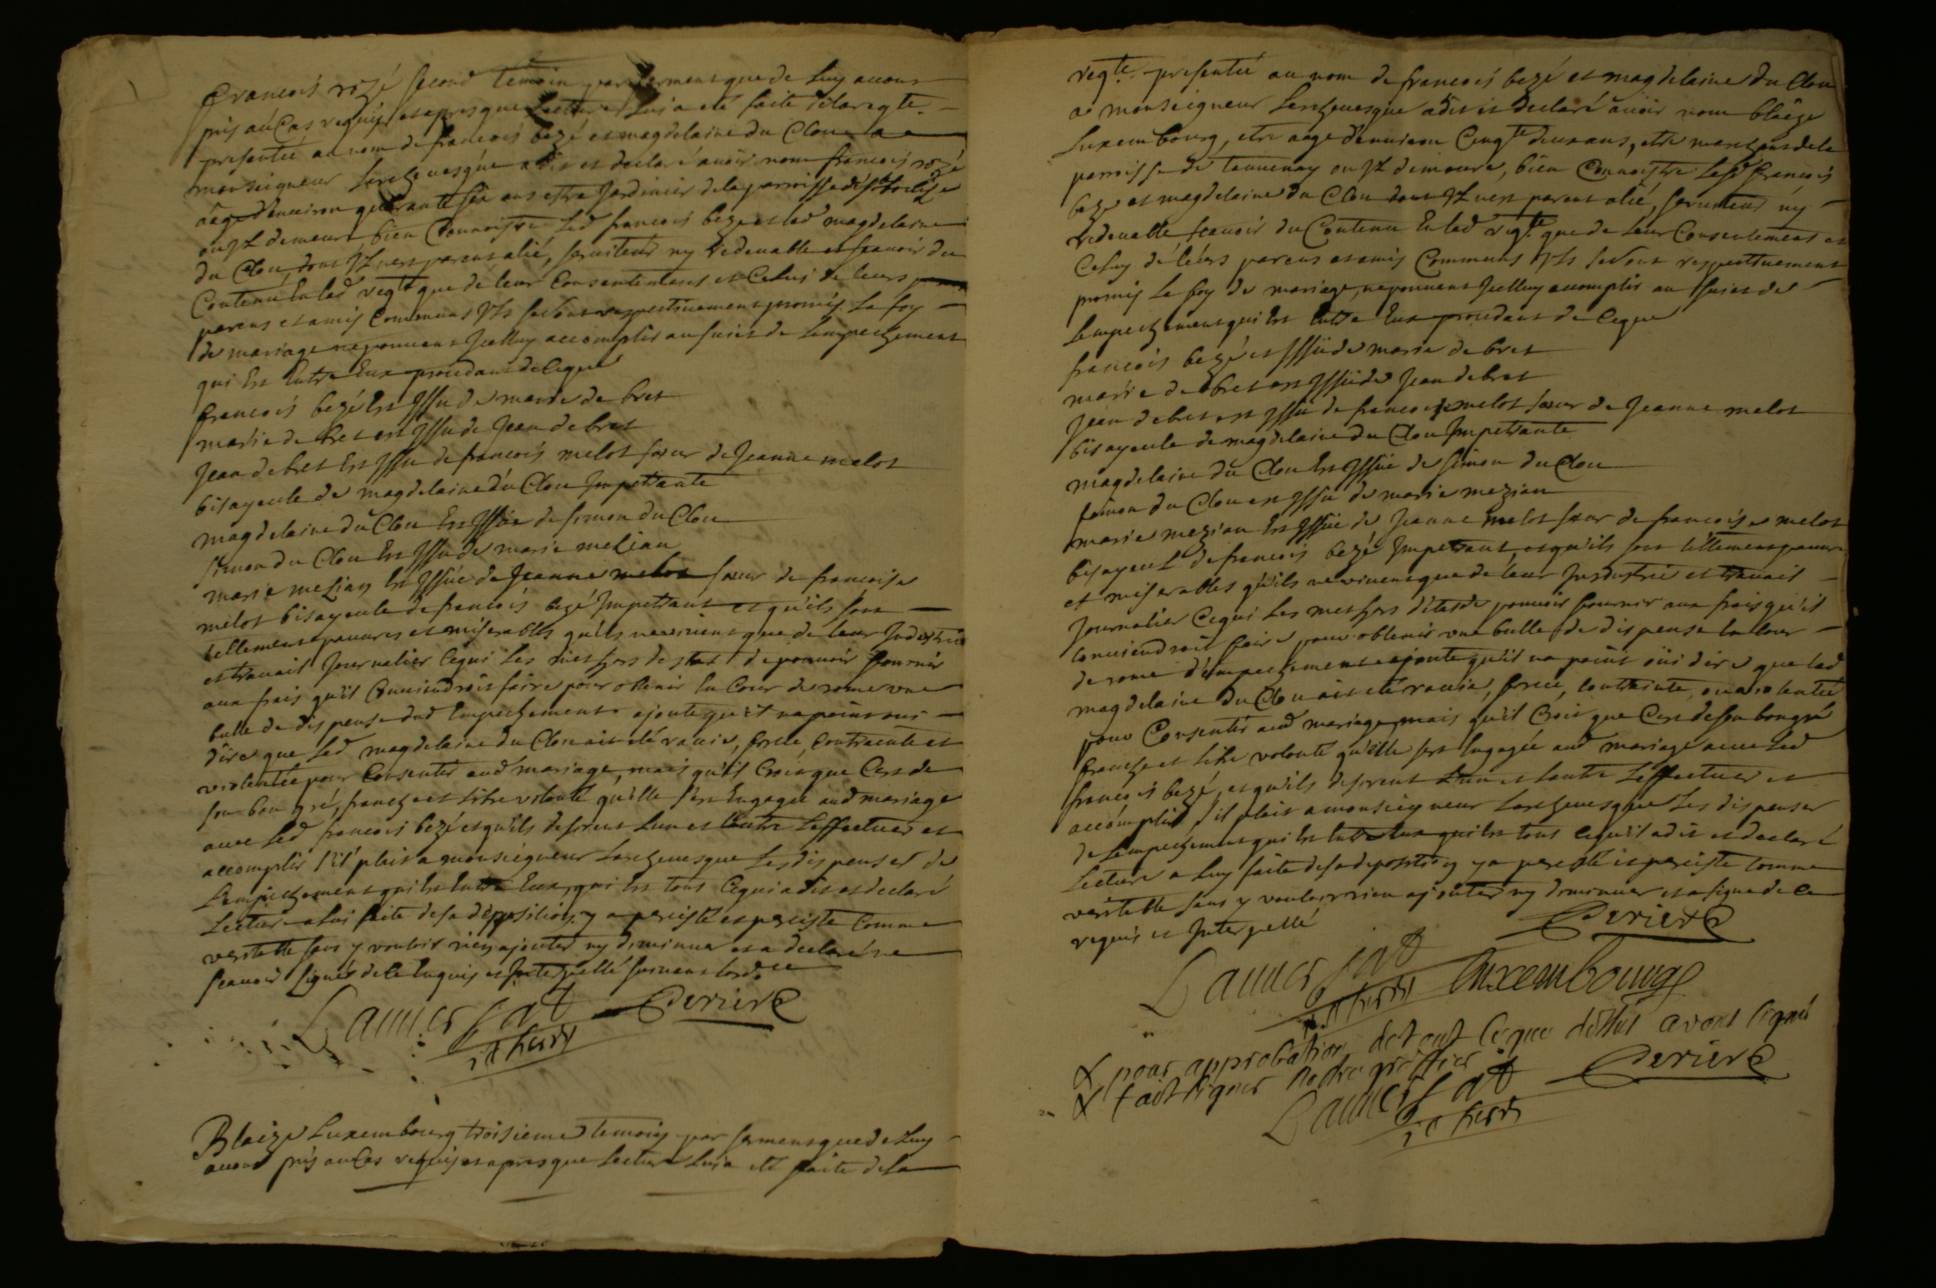 francois rozé second temoin par serment que de luy avons
pris au cas requis et apres que lecture luy a eté faite de la reqte
presentée au nom de francois bezé et magdelaine du Clou a
monseigneur Larcheuesque a dit et declaré avoir nom francois rozé
agé denuiron quarante six ans estre Jardinier de la parroisse de
ou Il demeure, bien Connoistre led francois bezé et lad magdelaine
du Clou, dont Il n'est parent alié, seruiteur ny redeuable et scauoir du
Contenu En lad reqte que de leur Consentement et Celui de leurs
parens et amis Communs Ils se sont respectiuement promis La foy
de mariage ne pouuant Icelluy accomplir au suiet de Lempechement
qui Est Entre Eux procedant de Ceque
francois bezé Est Issu de marie de bret
marie de bret est Issu de Jean de bret
Jean de bret Est Issu de francois melot sœur de Jeanne melot
bisayeule de magdelaine du Clou Impettrante
magdelaine du Clou Est Issüe de simon du Clou
simon du Clou Est Issu de marie mezian
marie mezian Est Issüe de Jeanne melot sœur de francoise
melot bisayeule de francois bezé Impettrant et qu'ils sont
tellement pauures et miserables qu'ils ne viuent que de leur Industrie
et trauail Journalier Cequi Les met hors destat de pouuoir fournir
aux frais qu'il Conuiendroit faire pour obtenir En Cour de rome vne
bulle de dispense dud Empechement ajoute qu'il na point oui
dire que Lad magdelaine du Clou ait eté rauie, forcée, Contrainte et
violentée pour Consentir aud mariage, mais qu'il Croit que Cest de
son bon gré, franche et libre volonté qu'elle s'est Engagée aud mariage
auec Led francois bezé et qu'ils desirent Lun et lautre Leffectuer et
accomplir s'il plait a monseigneur Larcheuesque Les dispenser de
Lempechement qui Est Entre Eux, qui Est tout Cequi a dit et declaré
Lecture a lui faite de sa deposition, y a percisté et perciste Comme
veritable sans y vouloir rien ajouter ny diminuer et a declaré ne
scauoir signer de Ce Enquis et Interpellé suiuant lordce
Periere
Blaize Luxembourg troisieme temoin par serment que de Luy
auons pris au Cas requis et apres que lecture Luy a eté faite de la
reqte presentée au nom de francois bezé et magdelaine du Clou
a monseigneur Larcheuesque a dit et declaré auoir nom blaize
Luxembourg, etre agé denuiron Cinqte deux ans, etre marchand de la
parroisse de tannenay ou Il demeure, bien Connoistre Lesd francois
bezé et magdelaine du Clou dont Il n'est parent alié, seruiteur ny
redeuable scauoir du Contenu En lad reqte que de leur Consentement et
Celuy de leurs parens et amis Communs Ils se sont respectiuement
promis La foy de mariage, ne pouuant Icelluy accomplir au suiet de
Lempechement qui Est Entre Eux procedant de Ceque
francois bezé est Issü de marie de bret
marie de bret est Issüe de Jean de bret
Jean de bret est Issu de francoise melot sœur de Jeanne melot
bisayeule de magdelaine du Clou Impettrante
magdelaine du Clou Est Issüe de simon du Clou
simon du Clou est Issu de marie mezian
marie mezian Est Issüe de Jeanne melot sœur de francoise melot
bisayeul de francois bezé Impetrant, et qu'ils sont tellement pauures
et miserables qu'ils ne viuent que de leur Industrie et trauail
Journalier Cequi Les met hors d'etat de pouuoir fournir aux frais qu'il
conuiendroit faire pour obtenir vne bulle de dispense En Cour
de rome d'empechement ajoute qu'il na point oüi dire que lad
magdelaine du Clou ait eté rauie, forcée, contrainte, ou violentée
pour Consentir aud mariage mais qu'il Croit que Cest de son bon gré
franche et libre volonté qu'elle sest Engagée aud mariage auec Led
francois bezé, et qu'ils desirent L'un et lautre Leffectuer et
accomplir s'il plait a monseigneur Larcheuesque Les dispenser
de Lempechement qui Est Entre Eux qui Est tout Cequ'il a dit et declaré
Lecture a Luy faite de sa deposition y a percisté et perciste Comme
veritable sans y vouloir rien ajouter ny diminuer et a signé de Ce
requis et Interpellé
Periere
Luxembourg
pour approbation de tout ceque dessus avons signé
fait signer notre greffier
Periere